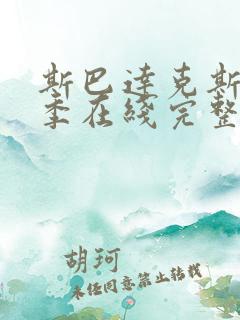 斯巴达克斯
季在线完整
胡珂
未经同意禁止转载